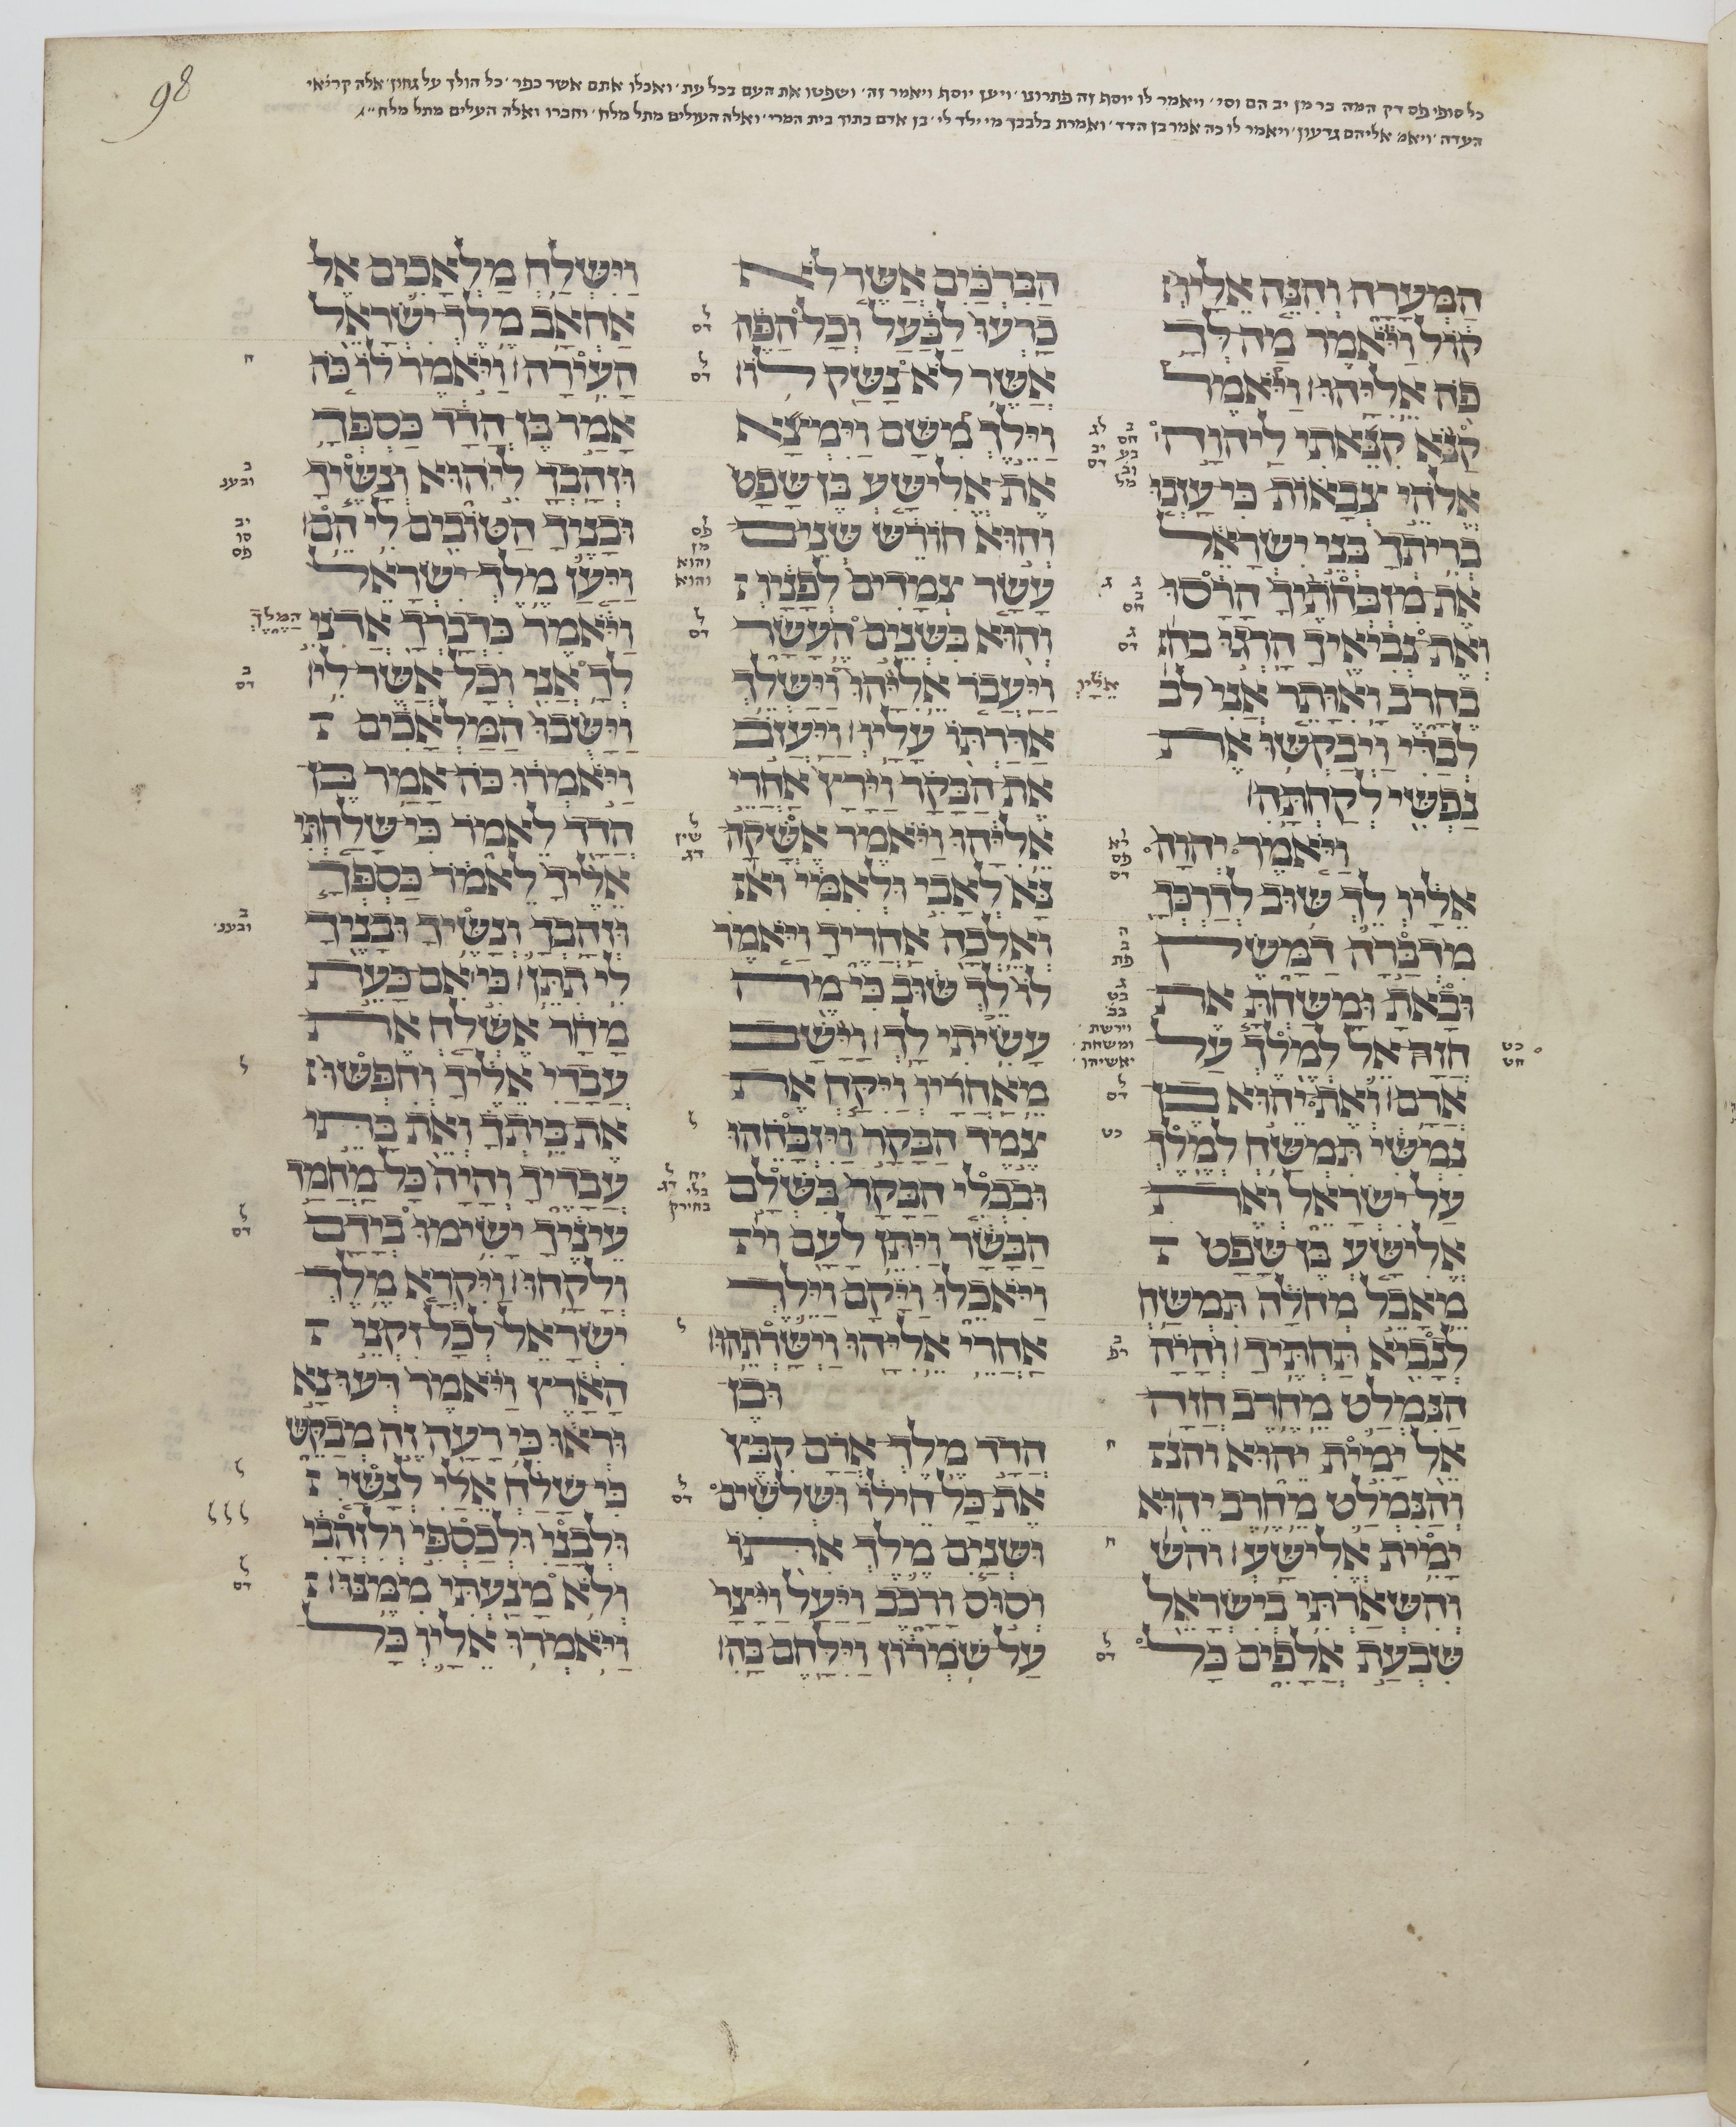 98
כל סופי פס דק המה בר מן יב הם וסי׳ ויאמר לו יוסף זה פתרונו ׳ ויען יוסף ויאמר זה ׳ ושפטו את העם בכל עת ׳ ואכלו אתם אשר כפר ׳ כל הולך על גחון ׳ אלה קריאי
העדה ׳ ויאמ׳ אליהם גדעון ׳ ויאמר לו כה אמר בן הדד ׳ ואמרת בלבבך מי ילד לי ׳ בן אדם בתוך בית המרי ׳ ואלה העולים מתל מלח ׳ וחברו ואלה העלים מתל מלח
המערה והנה אליו
קול ויאמר מה לך
פה אליהו׃ ויאמר
קנא קנאתי ליהוה
אלהי צבאות כי עזבו
בריתך בני ישראל
את מזבחתיך הרסו
ואת נביאיך הרגו בח
בחרב ואותר אני לב
לבדי ויבקשו את
נפשי לקחתה׃
ויאמר יהוה
אליו לך שוב לדרכך
מדברה דמשק
ובאת ומשחת את
חזהאל למלך על
ארם׃ ואת יהוא בן
נמשי תמשח למלך
על ישראל ואת
אלישע בן שפט
מאבל מחלה תמשח
לנביא תחתיך׃ והיה
הנמלט מחרב חזה
אל ימית יהוא והנ
והנמלט מחרב יהוא
ימית אלישע׃ והש
והשארתי בישראל
שבעת אלפים כל
הברכים אשר לא
כרעו לבעל וכל הפה
אשר לא נשק לו׃
וילך משם וימצא
את אלישע בן שפט
והוא חורש שנים
עשר צמדים לפניו
והוא בשנים העשר
ויעבר אליהו וישלך
אליו
אדרתו עליו׃ ויעזב
את הבקר וירץ אחרי
אליהו ויאמר אשקה
נא לאבי ולאמי וא
ואלכה אחריך ויאמר
לו לך שוב כי מה
עשיתי לך׃ וישב
מאחריו ויקח את
צמד הבקר ויזבחהו
ובכלי הבקר בשלם
הבשר ויתן לעם וי
ויאכלו ויקם וילך
אחרי אליהו וישרתהו׃
ובן
הדד מלך ארם קבץ
את כל חילו ושלשים
ושנים מלך אתו
וסוס ורכב ויעל ויצר
על שמרון וילחם בה׃
וישלח מלאכים אל
אחאב מלך ישראל
העירה׃ ויאמר לו כה
אמר בן הדד כספך
וזהבך לי הוא ונשיך
ובניך הטובים לי הם׃
ויען מלך ישראל
ויאמר כדברך אדני המלך
לך אני וכל אשר לי׃
וישבו המלאכים
ויאמרו כה אמר בן
הדד לאמר כי שלחתי
אליך לאמר כספך
וזהבך ונשיך ובניך
לי תתן׃ כי אם כעת
מחר אשלח את
עבדי אליך וחפשו
את ביתך ואת בתי
עבדיך והיה כל מחמד
עיניך ישימו בידם
ולקחו׃ ויקרא מלך
ישראל לכל זקני
הארץ ויאמר דעו נא
וראו כי רעה זה מבקש
כי שלח אלי לנשי
ולבני ולכספי ולזהבי
ולא מנעתי ממנו׃
ויאמרו אליו כל